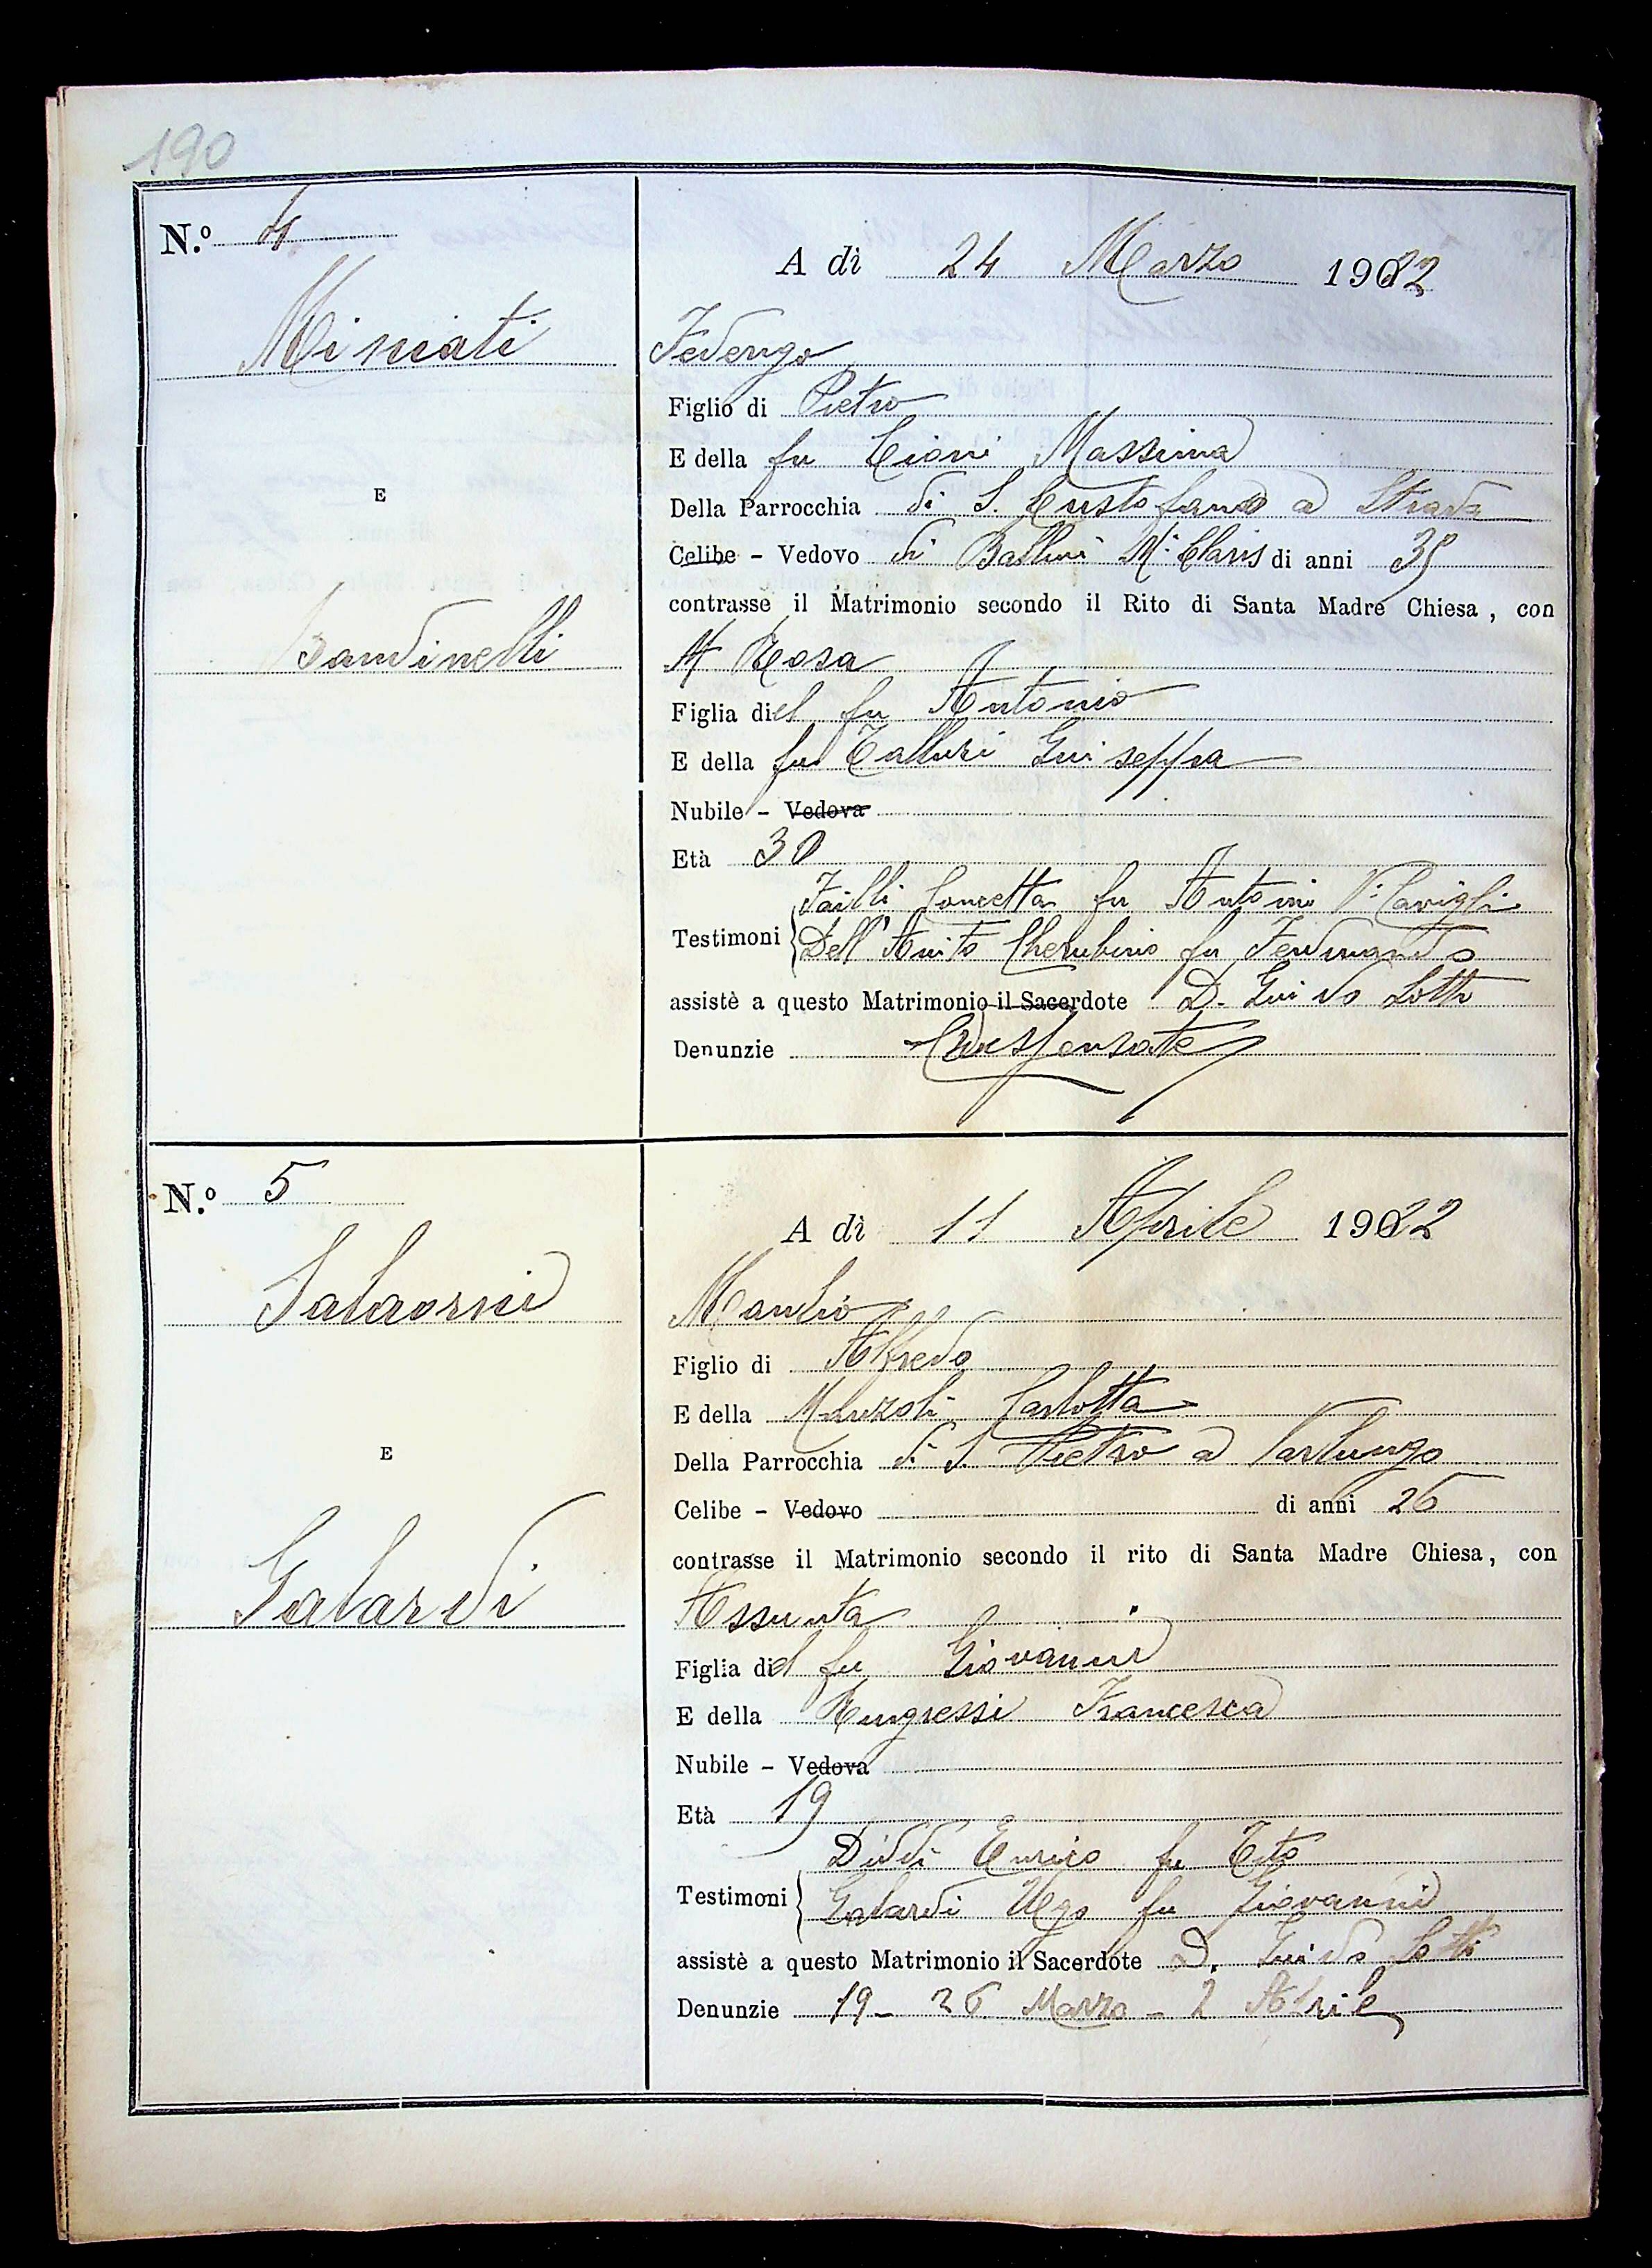 190
N.º 4
A dì 24 Marzo 1922
Miniati
Federigo
Figlio di Pietro
E della fu Cioni Massima
Della Parrocchia di S. Cristofano a Strada
E
Celibe - Vedovo di Ballini Mª Clavis di anni 35
contrasse il Matrimonio secondo il Rito di Santa Madre Chiesa, con
Bandinelli
Mª Rosa
Figlia del fu Antonio
E della fu Talluri Giuseppa
Nubile - Vedova
Età 30
Failli Concetta fu Antonio Vᵉ Cavigli
Testimoni Dell'Avito Cherubino fu Ferdinando
assistè a questo Matrimonio il Sacerdote D. Guido Lotti
Denunzie Dispensate
N.º 5
A dì 11 Aprile 1922
Salaorni
Manlio
Figlio di Alfredo
E della Meluzoli Carlotta
Della Parrocchia di S. Pietro a Varlungo
E
Celibe - Vedovo di anni 26
contrasse il Matrimonio secondo il rito di Santa Madre Chiesa, con
Galardi
Assunta
Figlia del fu Giovanni
E della Rungressi Francesca
Nubile - Vedova
Età 19
Diddi Enrico fu Tito
Testimoni Galardi Ugo fu Giovanni
assistè a questo Matrimonio il Sacerdote D. Guido Lotti
Denunzie 19 - 26 Marzo - 2 Aprile